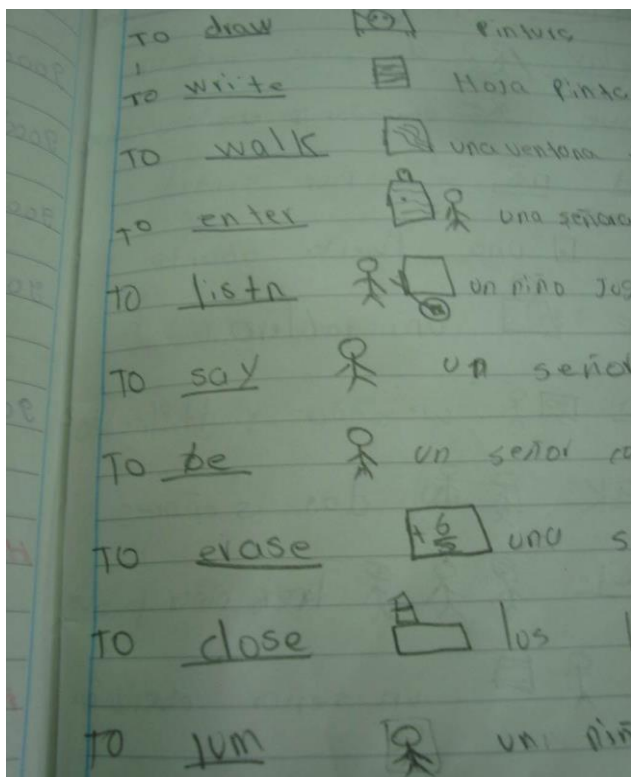 TO draw pintura
TO write Hoja pinta
TO walk una ventana
TO enter una señora
TO listn un niño Jus
TO say un señor
TO be un señor co
TO erase una s
TO close los
TO jum un niñ